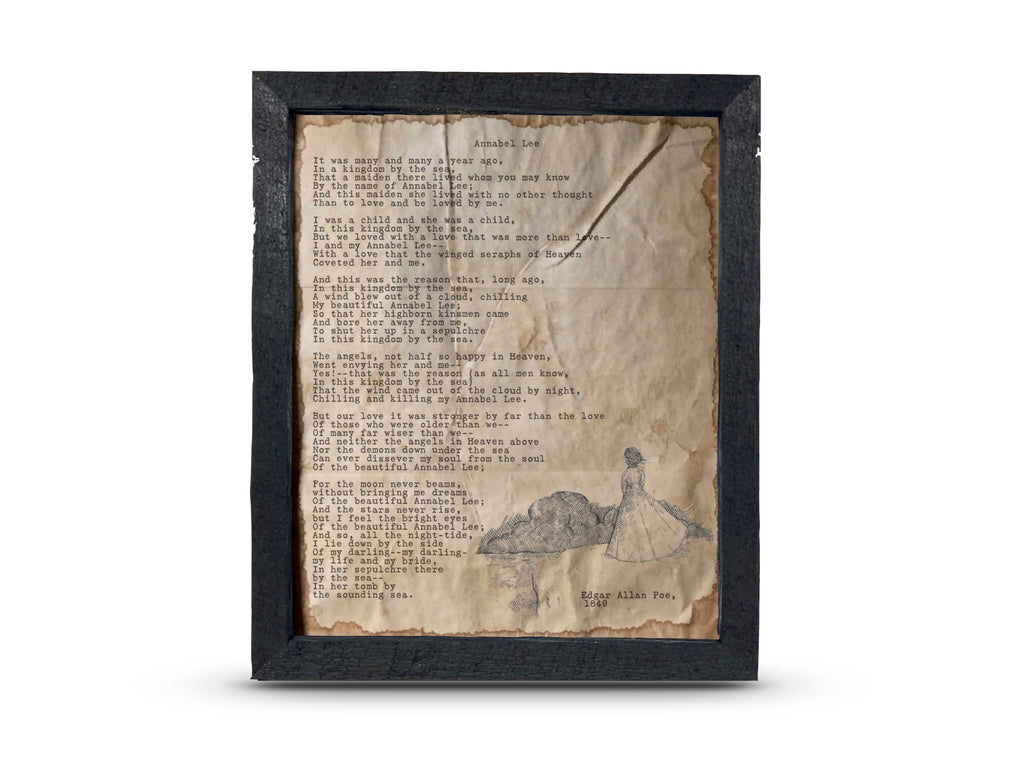 Annabel Lee
It was many and many a year ago,
In a kingdom by the sea,
That a maiden there lived whom you may know
By the name of Annabel Lee;
And this maiden she lived with no other thought
Than to love and be loved by me.
I was a child and she was a child,
In this kingdom by the sea,
But we loved with a love that was more than love--
I and my Annabel Lee--
With a love that the winged seraphs of Heaven
Coveted her and me.
And this was the reason that, long ago,
In this kingdom by the sea,
A wind blew out of a cloud, chilling
My beautiful Annabel Lee;
So that her highborn kinsmen came
And bore her away from me,
To shut her up in a sepulchre
In this kingdom by the sea.
The angels, not half so happy in Heaven,
Went envying her and me--
Yes!--that was the reason (as all men know,
In this kingdom by the sea)
That the wind came out of the cloud by night,
Chilling and killing my Annabel Lee.
But our love it was stronger by far than the love
Of those who were older than we--
Of many far wiser than we--
And neither the angels in Heaven above
Nor the demons down under the sea
Can ever dissever my soul from the soul
Of the beautiful Annabel Lee;
For the moon never beams,
without bringing me dreams
Of the beautiful Annabel Lee;
And the stars never rise,
but I feel the bright eyes
Of the beautiful Annabel Lee;
And so, all the night-tide,
I lie down by the side
Of my darling--my darling-
my life and my bride,
In her sepulchre there
by the sea--
In her tomb by
the sounding sea.
Edgar Allan Poe,
1849